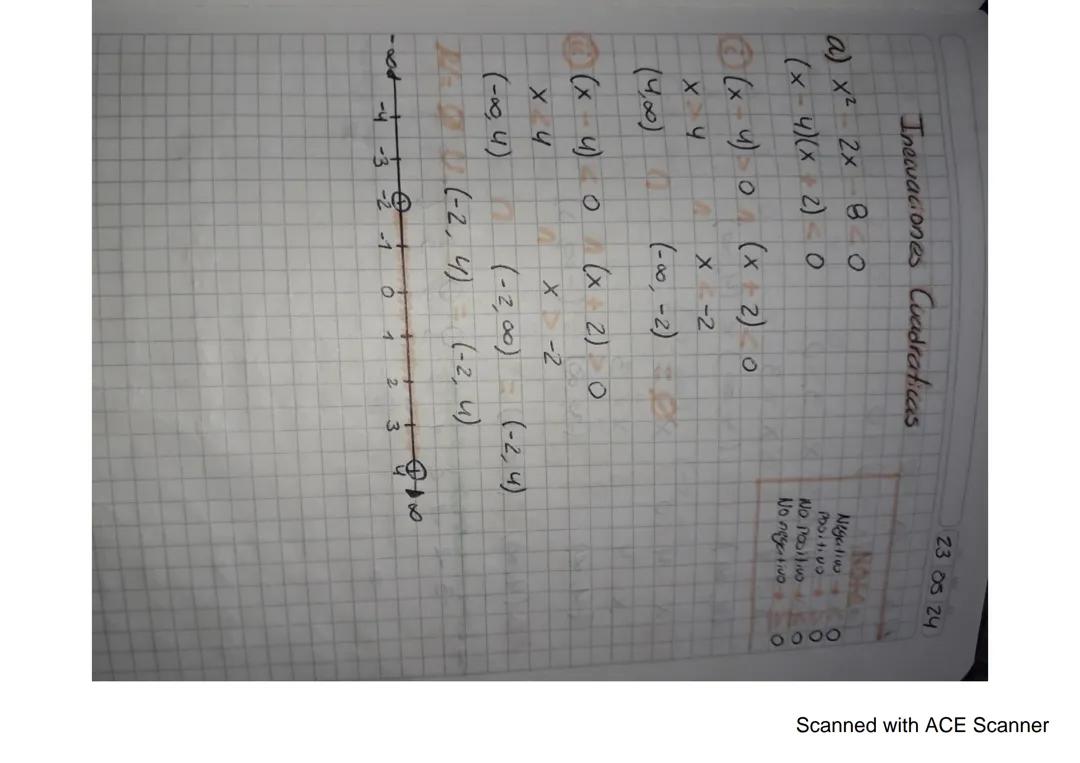 23 05 24
Inecuaciones Cuadraticas
Nota
Negativo → < 0
Positivo → > 0
No positivo → ≤ 0
No negativo → ≥ 0
a) x² - 2x - 8 < 0
(x - 4)(x + 2) < 0
i (x - 4) > 0 ∩ (x + 2) < 0
x > 4 ∩ x < -2
(4,∞) ∩ (-∞, -2) = Ø
ii (x - 4) < 0 ∩ (x + 2) > 0
x < 4 ∩ x > -2
(-∞, 4) ∩ (-2, ∞) = (-2, 4)
Ø U (-2, 4) = (-2, 4)
-∞ -4 -3 -2 -1 0 1 2 3 4 ∞
Scanned with ACE Scanner